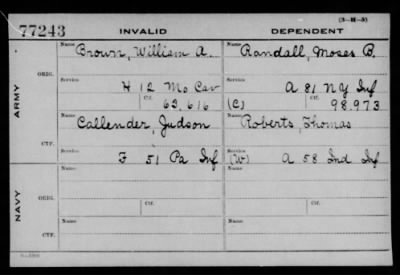 (3-H-5)
77243 INVALID DEPENDENT
Name Brown, William A. Name Randall, Moses B.
ORIG.
Service H 12 Mo Cav Service A 81 NY Inf
Ctf. 62,616 (C) Ctf. 98.973
ARMY
Name Callender, Judson Name Roberts, Thomas
CTF.
Service F 51 Pa Inf Service (W) A 58 Ind Inf
Name Name
ORIG.
Ctf. Ctf.
NAVY
Name Name
CTF.